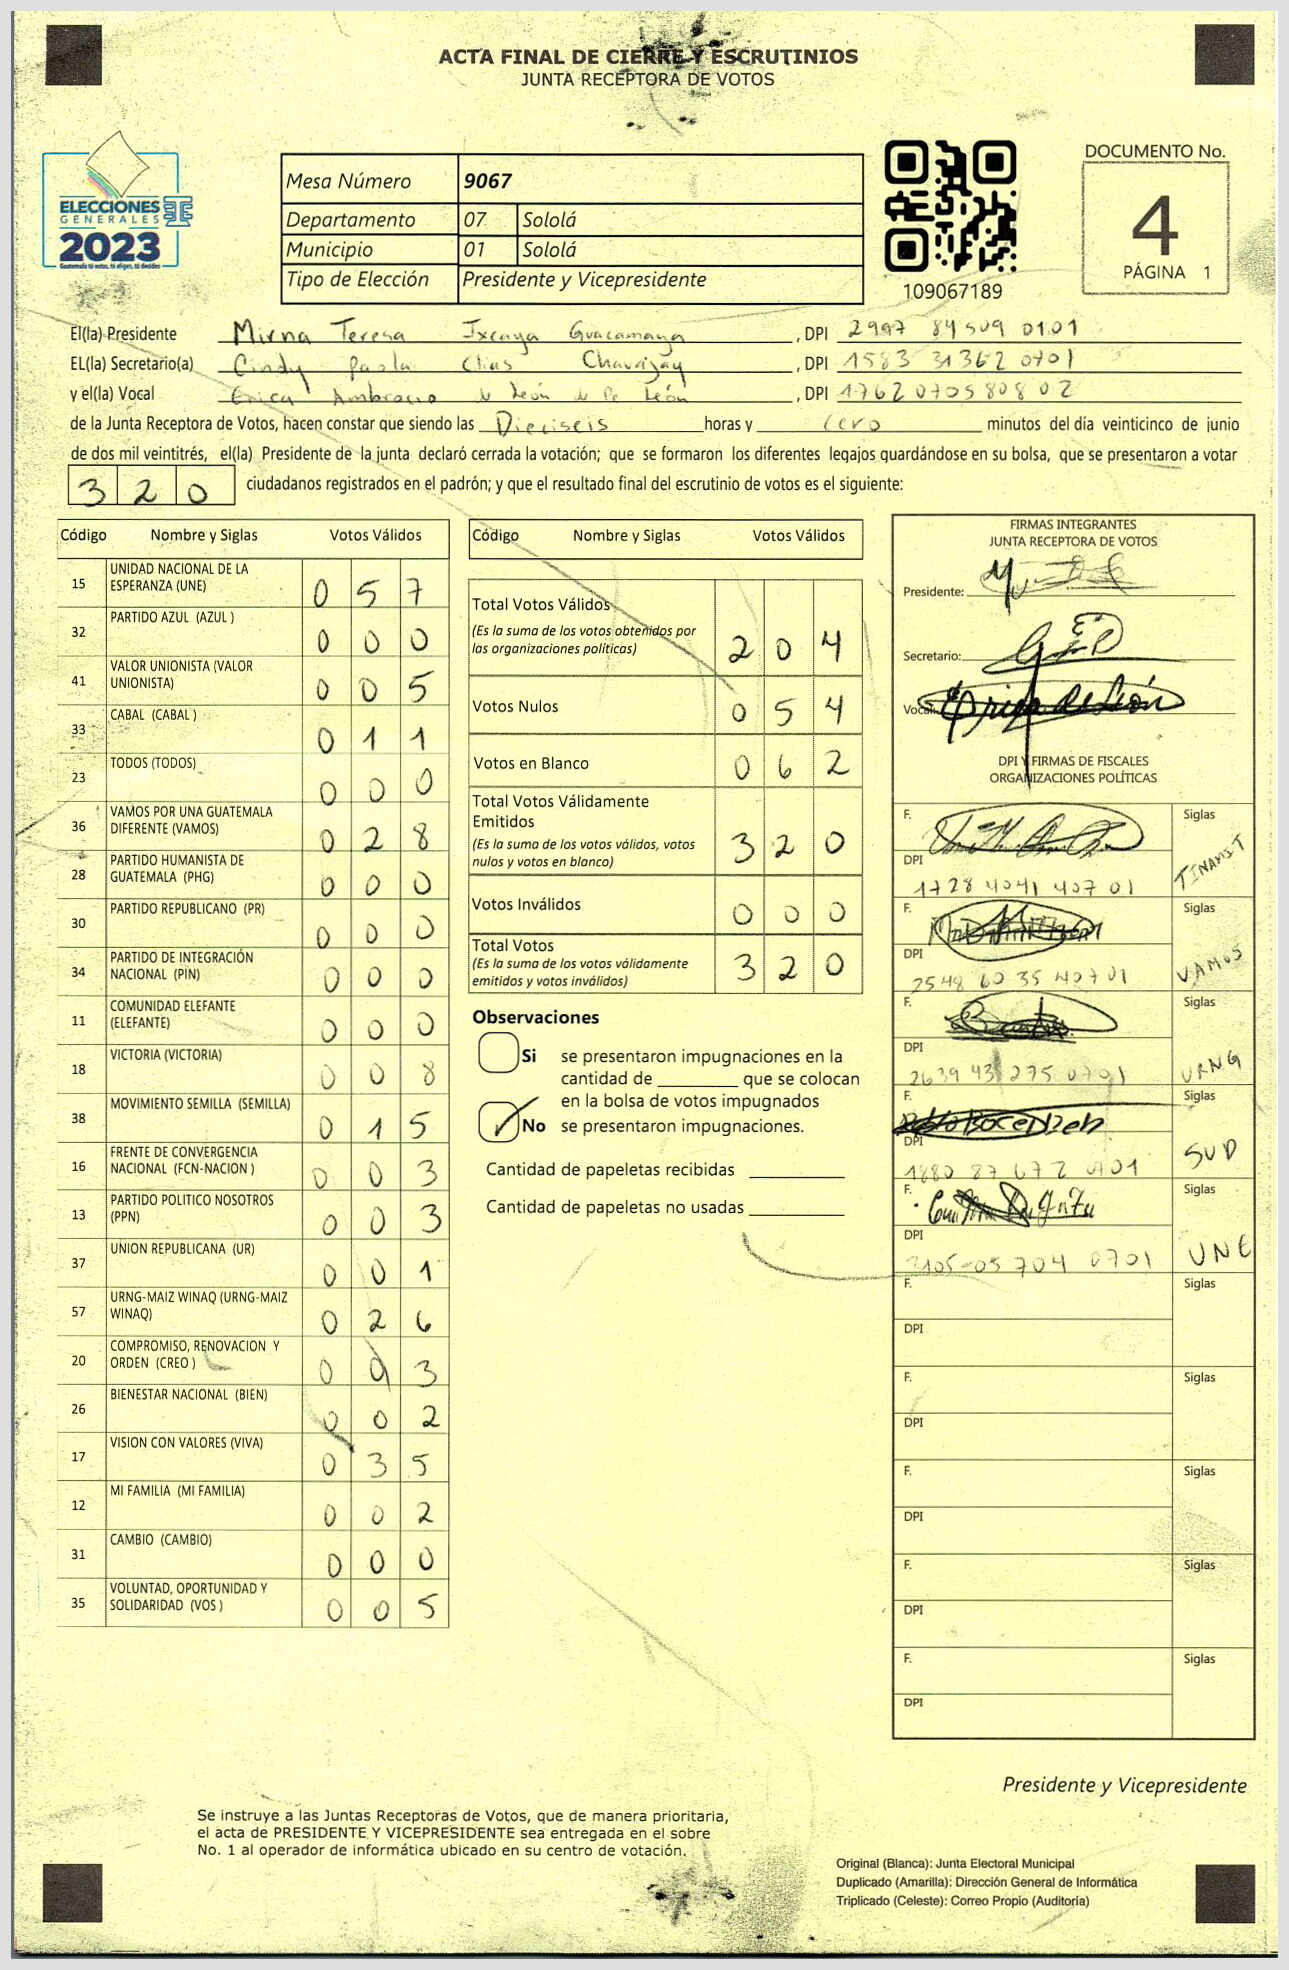 ACTA FINAL DE CIERRE Y ESCRUTINIOS
JUNTA RECEPTORA DE VOTOS
ELECCIONES
GENERALES
2023
Guatemala tú votas, tú eliges, tú decides
Mesa Número 9067
Departamento 07 Sololá
Municipio 01 Sololá
Tipo de Elección Presidente y Vicepresidente
109067189
DOCUMENTO No.
4
PÁGINA 1
El(la) Presidente Mirna Teresa Ixcaya Guacamaya, DPI 2997 84509 0101
EL(la) Secretario(a) Cindy Paola Elias Chavajay, DPI 1583 31362 0701
y el(la) Vocal Erica Ambrosio de León de De León, DPI 1762 07058 0802
de la Junta Receptora de Votos, hacen constar que siendo las Dieciseis horas y cero minutos del día veinticinco de junio
de dos mil veintitrés, el(la) Presidente de la junta declaró cerrada la votación; que se formaron los diferentes legajos guardándose en su bolsa, que se presentaron a votar
320 ciudadanos registrados en el padrón; y que el resultado final del escrutinio de votos es el siguiente:
Código Nombre y Siglas Votos Válidos
15 UNIDAD NACIONAL DE LA ESPERANZA (UNE) 0 5 7
32 PARTIDO AZUL (AZUL ) 0 0 0
41 VALOR UNIONISTA (VALOR UNIONISTA) 0 0 5
33 CABAL (CABAL ) 0 1 1
23 TODOS (TODOS) 0 0 0
36 VAMOS POR UNA GUATEMALA DIFERENTE (VAMOS) 0 2 8
28 PARTIDO HUMANISTA DE GUATEMALA (PHG) 0 0 0
30 PARTIDO REPUBLICANO (PR) 0 0 0
34 PARTIDO DE INTEGRACIÓN NACIONAL (PIN) 0 0 0
11 COMUNIDAD ELEFANTE (ELEFANTE) 0 0 0
18 VICTORIA (VICTORIA) 0 0 8
38 MOVIMIENTO SEMILLA (SEMILLA) 0 1 5
16 FRENTE DE CONVERGENCIA NACIONAL (FCN-NACION ) 0 0 3
13 PARTIDO POLITICO NOSOTROS (PPN) 0 0 3
37 UNION REPUBLICANA (UR) 0 0 1
57 URNG-MAIZ WINAQ (URNG-MAIZ WINAQ) 0 2 6
20 COMPROMISO, RENOVACION Y ORDEN (CREO ) 0 0 3
26 BIENESTAR NACIONAL (BIEN) 0 0 2
17 VISION CON VALORES (VIVA) 0 3 5
12 MI FAMILIA (MI FAMILIA) 0 0 2
31 CAMBIO (CAMBIO) 0 0 0
35 VOLUNTAD, OPORTUNIDAD Y SOLIDARIDAD (VOS ) 0 0 5
Código Nombre y Siglas Votos Válidos
Total Votos Válidos
(Es la suma de los votos obtenidos por
las organizaciones políticas) 2 0 4
Votos Nulos 0 5 4
Votos en Blanco 0 6 2
Total Votos Válidamente
Emitidos
(Es la suma de los votos válidos, votos
nulos y votos en blanco) 3 2 0
Votos Inválidos 0 0 0
Total Votos
(Es la suma de los votos válidamente
emitidos y votos inválidos) 3 2 0
Observaciones
Si se presentaron impugnaciones en la
cantidad de ________ que se colocan
en la bolsa de votos impugnados
No se presentaron impugnaciones.
Cantidad de papeletas recibidas
Cantidad de papeletas no usadas
FIRMAS INTEGRANTES
JUNTA RECEPTORA DE VOTOS
Presidente:
Secretario:
Vocal: Erica de León
DPI Y FIRMAS DE FISCALES
ORGANIZACIONES POLÍTICAS
F. Siglas
DPI 1728 4041 40701 TINAMIT
F. Siglas
DPI 2548 60 35 40701 VAMOS
F. Siglas
DPI 2639 43 275 0701 URNG
F. Siglas
DPI 1880 87 672 0701 SUD
F. Siglas
DPI 3105-05 704 0701 UNE
F. Siglas
DPI
F. Siglas
DPI
F. Siglas
DPI
F. Siglas
DPI
F. Siglas
DPI
Presidente y Vicepresidente
Se instruye a las Juntas Receptoras de Votos, que de manera prioritaria,
el acta de PRESIDENTE Y VICEPRESIDENTE sea entregada en el sobre
No. 1 al operador de informática ubicado en su centro de votación.
Original (Blanca): Junta Electoral Municipal
Duplicado (Amarilla): Dirección General de Informática
Triplicado (Celeste): Correo Propio (Auditoría)